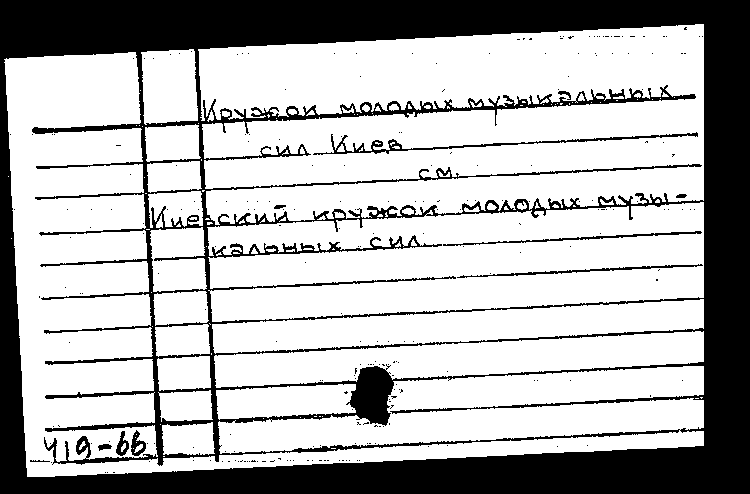 Кружок молодых музыкальных
сил Киев
см.
Киевский кружок молодых музы-
кальных сил.
419-66